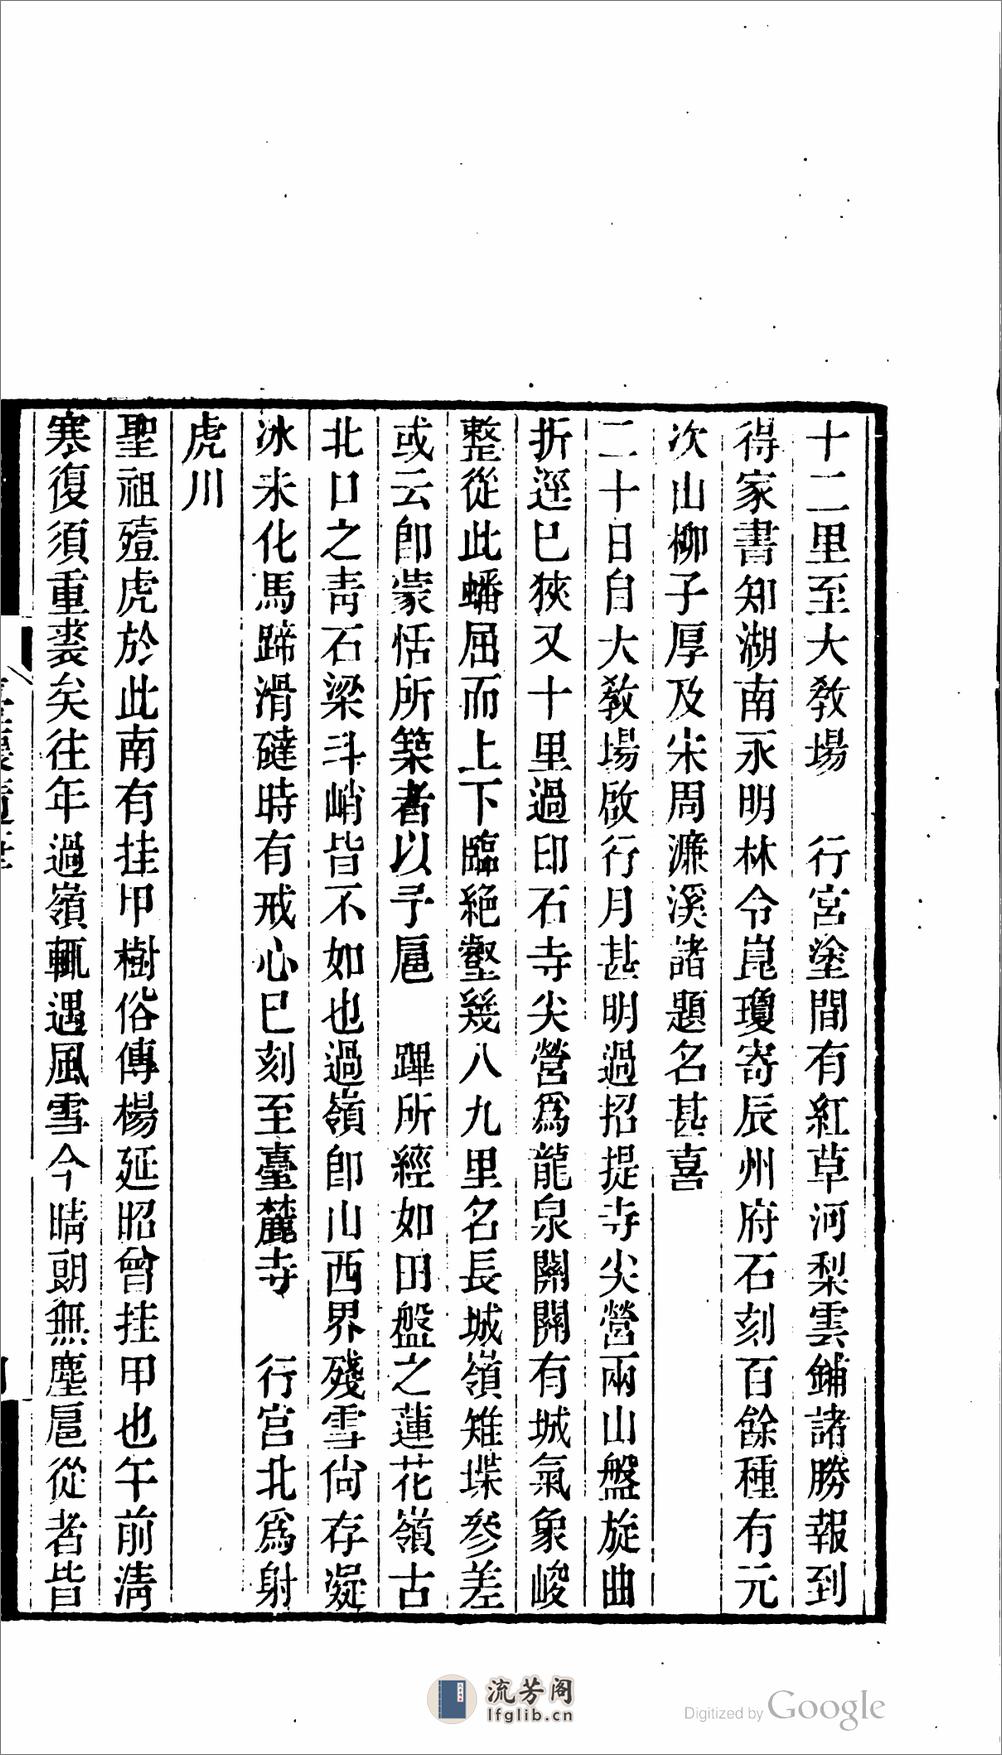 十二里至大敎塲　行宮塗間有紅草河梨雲鋪諸勝報到
得家書知湖南永明林令崑瓊寄辰州府石刻百餘種有元
次山柳子厚及宋周濂溪諸題名甚喜
二十日自大敎塲啟行月甚明過招提寺尖營兩山盤旋曲
折逕已狹又十里過印石寺尖營爲龍泉關關有城氣象峻
整從此蟠屈而上下臨絶壑幾八九里名長城嶺雉堞參差
或云卽蒙恬所築者以予扈　蹕所經如田盤之蓮花嶺古
北口之靑石梁斗峭皆不如也過嶺卽山西界殘雪尙存凝
冰未化馬蹄滑㺚時有戒心巳刻至臺麓寺　行宮北爲射
虎川
聖祖殪虎於此南有挂甲樹俗傳楊延昭曾挂甲也午前淸
寒復須重裘矣往年過嶺輒遇風雪今晴朗無塵扈從者皆
流芳阁
lfglib.cn
Digitized by Google